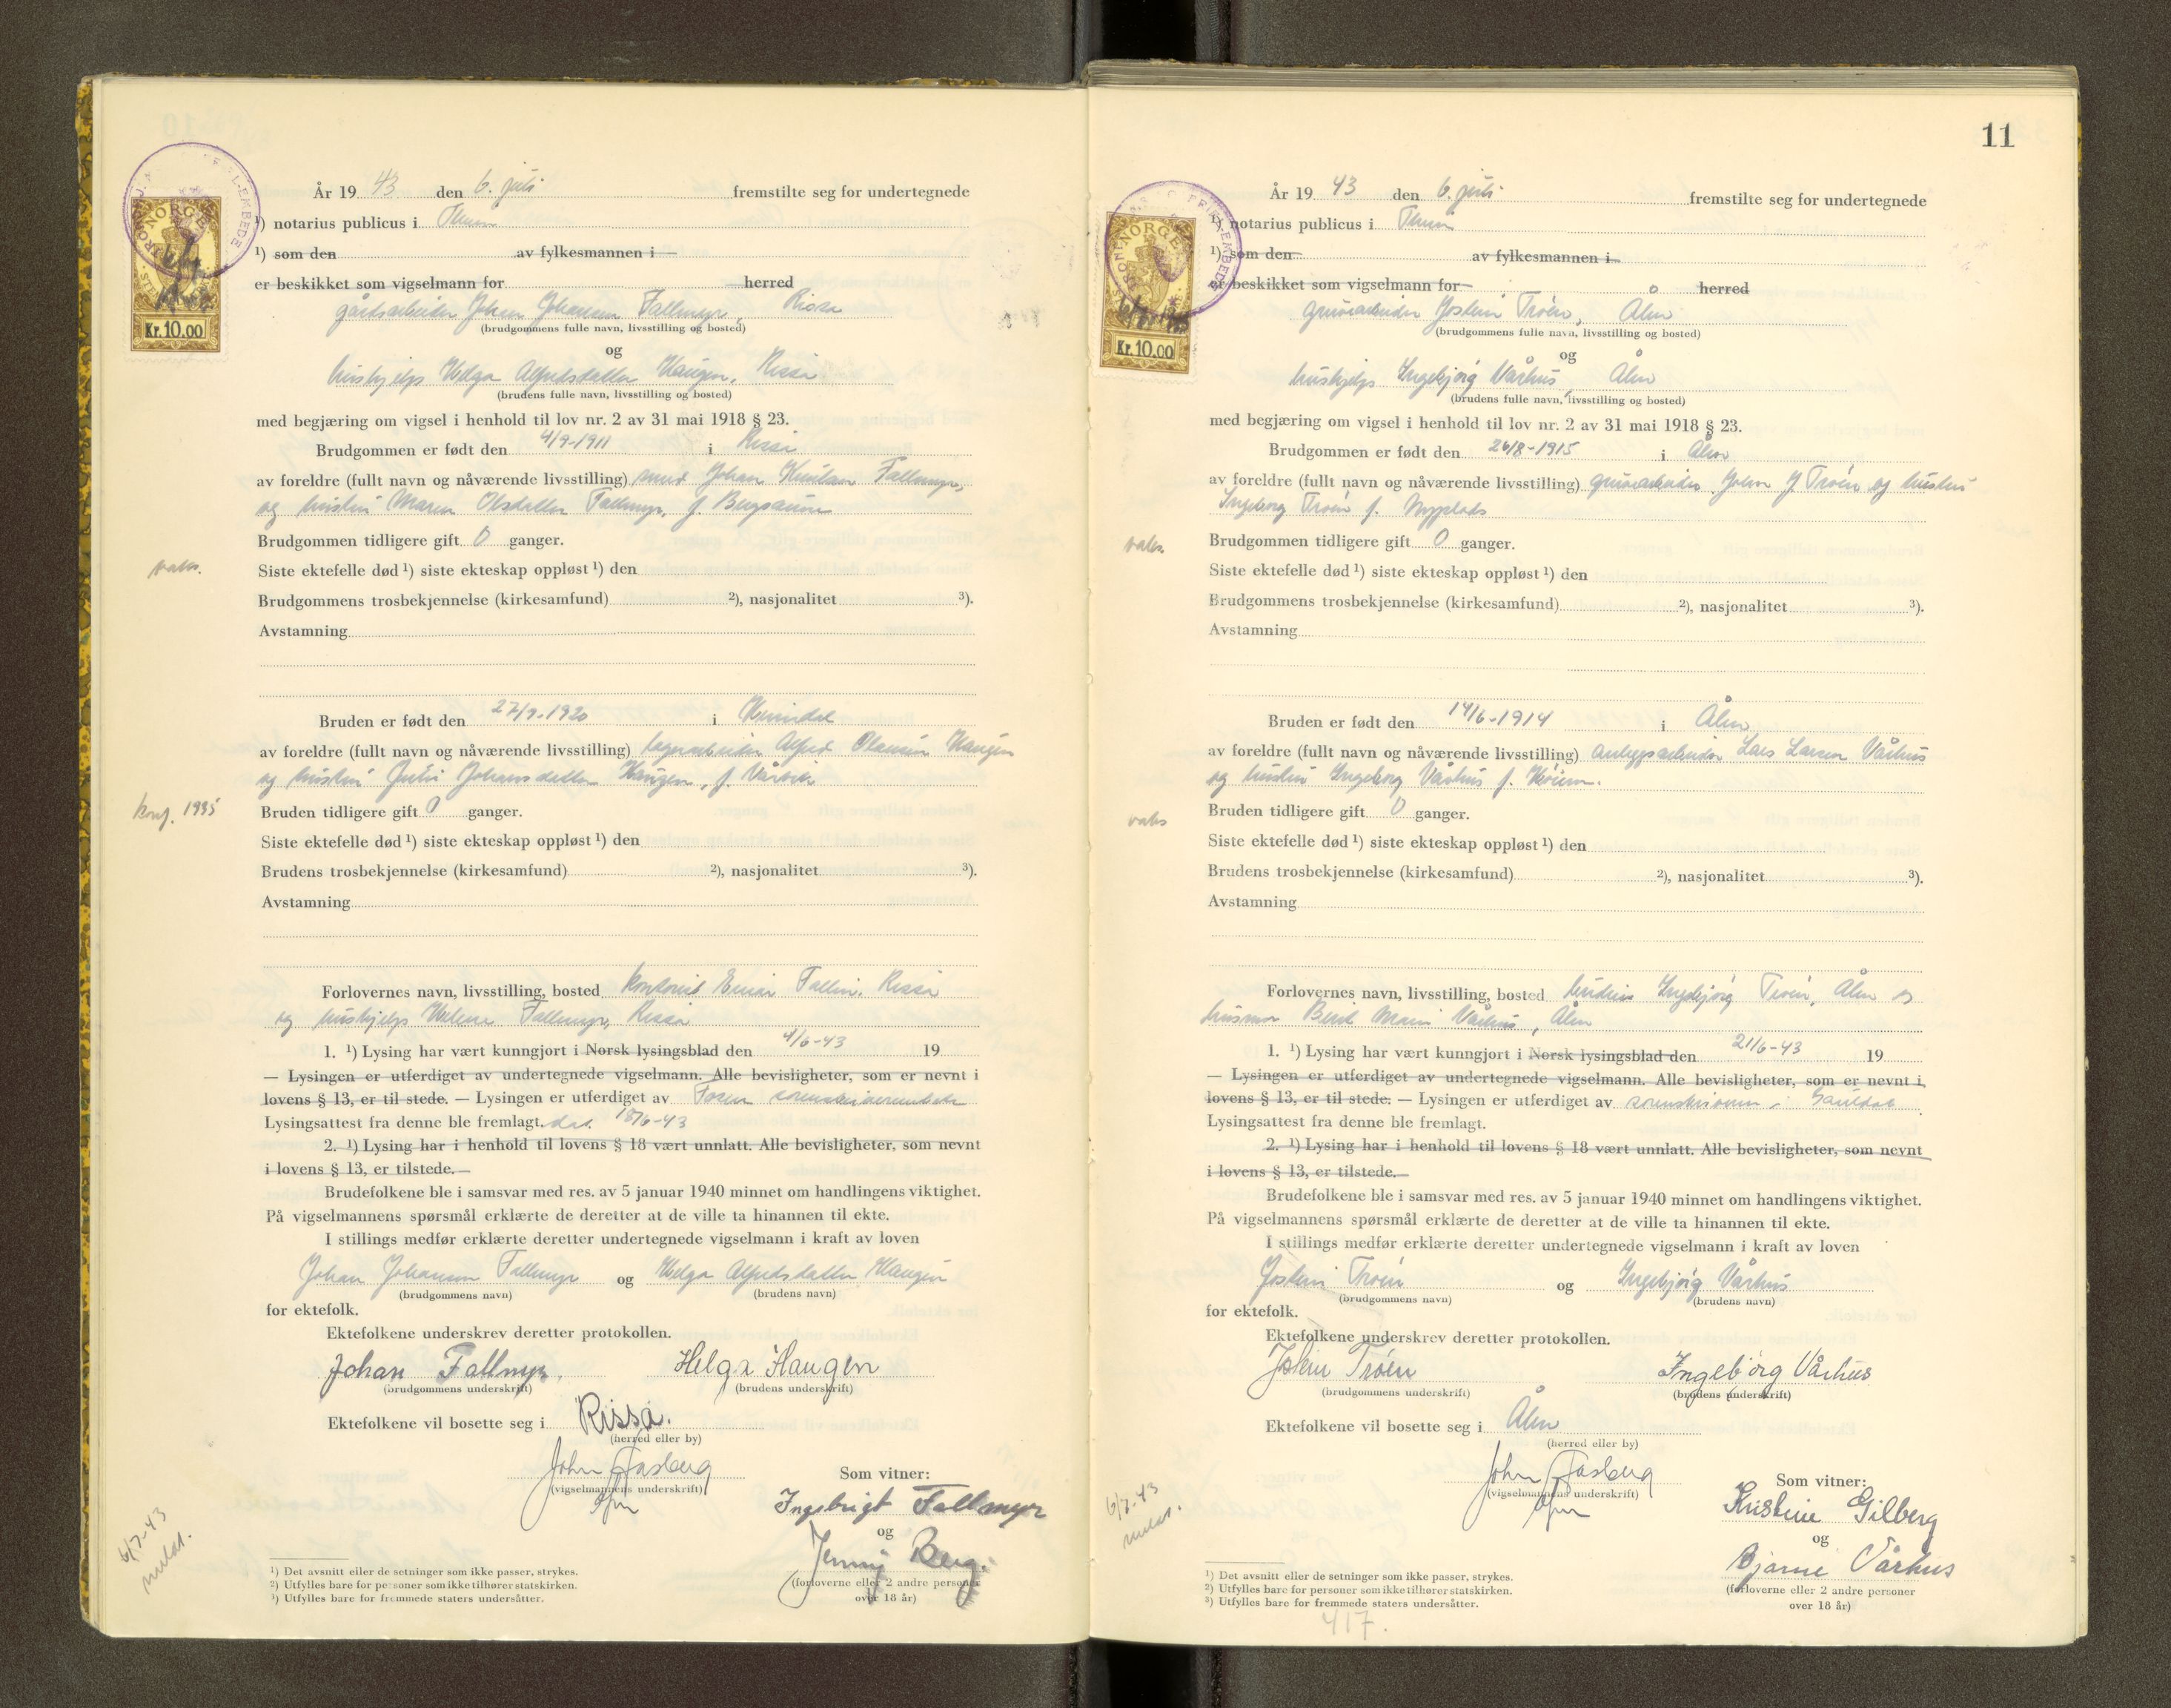 År 19 43 den 6. juli fremstilte seg for undertegnede
¹) notarius publicus i
¹) som den av fylkesmannen i
er beskikket som vigselmann for herred
gårdsarbeider Johan Johansen Fallmyr, Rissa
(brudgommens fulle navn, livsstilling og bosted)
og
hushjelp Helga Alfredsdatter Haugen, Rissa
(brudens fulle navn, livsstilling og bosted)
med begjæring om vigsel i henhold til lov nr. 2 av 31 mai 1918 § 23.
Brudgommen er født den 4/9-1911 i Rissa
av foreldre (fullt navn og nåværende livsstilling) Johan Fallmyr,
og hustru Maren Olsdatter Fallmyr, f.
Brudgommen tidligere gift 0 ganger.
vaks.
Siste ektefelle død ¹) siste ekteskap oppløst ¹) den
Brudgommens trosbekjennelse (kirkesamfund) ²), nasjonalitet ³).
Avstamning
Bruden er født den 27/9-1920 i
av foreldre (fullt navn og nåværende livsstilling) Alfred Haugen
og hustru Johansdatter Haugen, f.
konf. 1935
Bruden tidligere gift 0 ganger.
Siste ektefelle død ¹) siste ekteskap oppløst ¹) den
Brudens trosbekjennelse (kirkesamfund) ²), nasjonalitet ³).
Avstamning
Forlovernes navn, livsstilling, bosted kontorist Einar Rissa
og hushjelp Helene Fallmyr, Rissa
1. ¹) Lysing har vært kunngjort i Norsk lysingsblad den 4/6-43 19
— Lysingen er utferdiget av undertegnede vigselmann. Alle bevisligheter, som er nevnt i
lovens § 13, er til stede. — Lysingen er utferdiget av Fosen sorenskriverembete
Lysingsattest fra denne ble fremlagt. dat. 18/6-43
2. ¹) Lysing har i henhold til lovens § 18 vært unnlatt. Alle bevisligheter, som nevnt
i lovens § 13, er tilstede.—
Brudefolkene ble i samsvar med res. av 5 januar 1940 minnet om handlingens viktighet.
På vigselmannens spørsmål erklærte de deretter at de ville ta hinannen til ekte.
I stillings medfør erklærte deretter undertegnede vigselmann i kraft av loven
Johan Johansen Fallmyr og Helga Alfredsdatter Haugen
(brudgommens navn) (brudens navn)
for ektefolk.
Ektefolkene underskrev deretter protokollen.
Johan Fallmyr. Helga Haugen
(brudgommens underskrift) (brudens underskrift)
Ektefolkene vil bosette seg i Rissa.
(herred eller by)
John Aasberg
(vigselmannens underskrift)
Som vitner:
Ingebrigt Fallmyr
og
Jenny Berg.
(forloverne eller 2 andre personer
over 18 år)
6/7-43
meldt.
¹) Det avsnitt eller de setninger som ikke passer, strykes.
²) Utfylles bare for personer som ikke tilhører statskirken.
³) Utfylles bare for fremmede staters undersåtter.
NORGE
Kr. 10.00
11
År 19 43 den 6. juli fremstilte seg for undertegnede
¹) notarius publicus i
¹) som den av fylkesmannen i
er beskikket som vigselmann for herred
gruvearbeider Jostein Trøen, Ålen
(brudgommens fulle navn, livsstilling og bosted)
og
hushjelp Ingebjørg Vårhus, Ålen
(brudens fulle navn, livsstilling og bosted)
med begjæring om vigsel i henhold til lov nr. 2 av 31 mai 1918 § 23.
Brudgommen er født den 26/8-1915 i Ålen
av foreldre (fullt navn og nåværende livsstilling) gruvearbeider John J Trøen og hustru
Ingeborg Trøen f. Nyplads
Brudgommen tidligere gift 0 ganger.
vaks.
Siste ektefelle død ¹) siste ekteskap oppløst ¹) den
Brudgommens trosbekjennelse (kirkesamfund) ²), nasjonalitet ³).
Avstamning
Bruden er født den 14/6-1914 i Ålen
av foreldre (fullt navn og nåværende livsstilling) anleggsarbeider Lars Larsen Vårhus
og hustru Ingeborg Vårhus f.
vaks
Bruden tidligere gift 0 ganger.
Siste ektefelle død ¹) siste ekteskap oppløst ¹) den
Brudens trosbekjennelse (kirkesamfund) ²), nasjonalitet ³).
Avstamning
Forlovernes navn, livsstilling, bosted Ingebjørg Trøen, Ålen og
husmor Marie Vårhus, Ålen
1. ¹) Lysing har vært kunngjort i Norsk lysingsblad den 21/6-43 19
— Lysingen er utferdiget av undertegnede vigselmann. Alle bevisligheter, som er nevnt i
lovens § 13, er til stede. — Lysingen er utferdiget av sorenskriveren i Gauldal
Lysingsattest fra denne ble fremlagt.
2. ¹) Lysing har i henhold til lovens § 18 vært unnlatt. Alle bevisligheter, som nevnt
i lovens § 13, er tilstede.—
Brudefolkene ble i samsvar med res. av 5 januar 1940 minnet om handlingens viktighet.
På vigselmannens spørsmål erklærte de deretter at de ville ta hinannen til ekte.
I stillings medfør erklærte deretter undertegnede vigselmann i kraft av loven
Jostein Trøen og Ingebjørg Vårhus
(brudgommens navn) (brudens navn)
for ektefolk.
Ektefolkene underskrev deretter protokollen.
Jostein Trøen Ingebjørg Vårhus
(brudgommens underskrift) (brudens underskrift)
Ektefolkene vil bosette seg i Ålen
(herred eller by)
John Aasberg
(vigselmannens underskrift)
Som vitner:
Kristine Gilberg
og
Bjarne Vårhus
(forloverne eller 2 andre personer
over 18 år)
6/7-43
meldt.
¹) Det avsnitt eller de setninger som ikke passer, strykes.
²) Utfylles bare for personer som ikke tilhører statskirken.
³) Utfylles bare for fremmede staters undersåtter.
417.
NORGE
Kr. 10.00